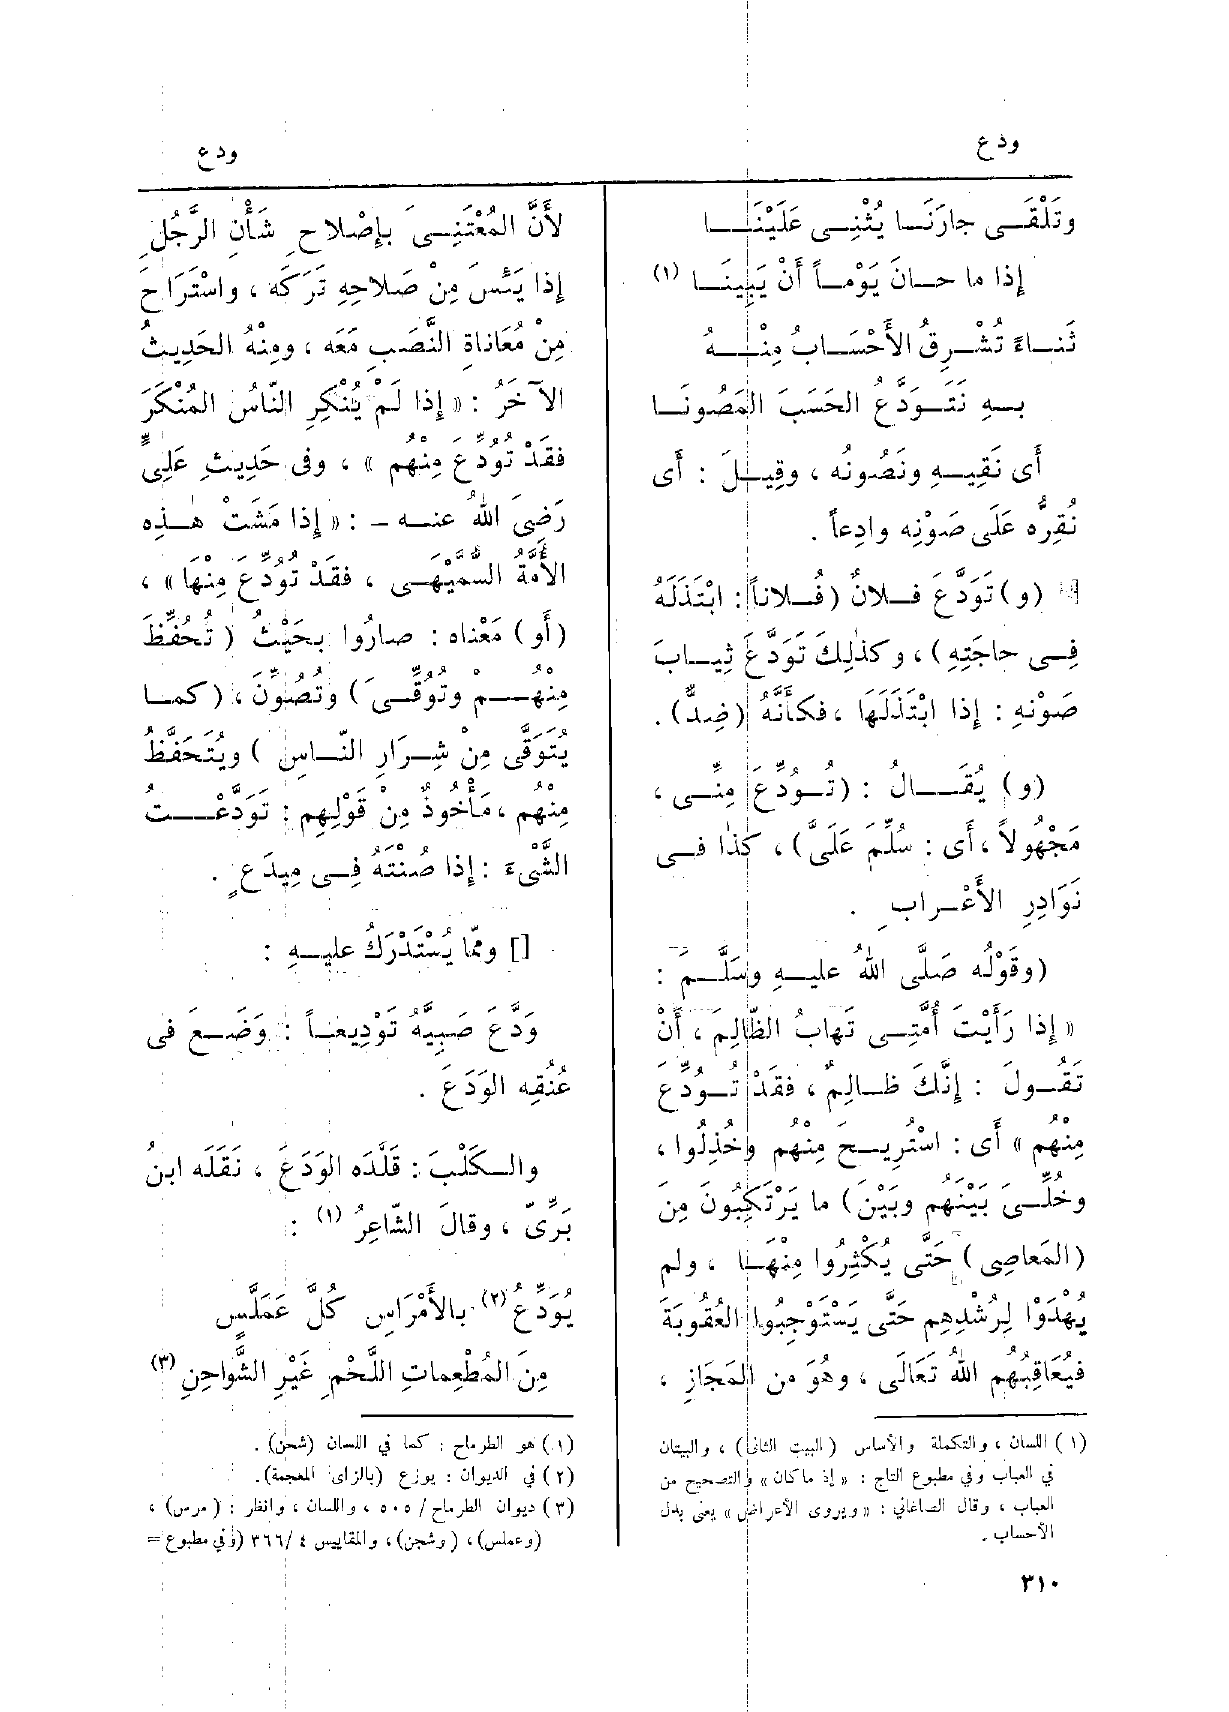 ودع
ودع
وتَلْقَــى جارَنَــا يُثْنِــى عَلَيْنَــا
إذا ما حــانَ يَوْمــاً أنْ يَبِينَــا (١)
ثَنــاءً تُشْــرِقُ الأَحْسَــابُ مِنْــهُ
بــهِ نَتَــوَدَّعُ الحَسَبَ المَصُونَــا
أى نَقِيــهِ ونَصُونُه ، وقِيــلَ : أى
نُقِرُّه عَلَى صَوْنِه وادِعاً .
(و) تَوَدَّعَ فــلانٌ (فُــلاناً : ابْتَذَلَهُ
فِــى حاجَتِهِ) ، وكذٰلِكَ تَوَدَّعَ ثِيــابَ
صَوْنهِ : إذا ابْتَذَلَهَا ، فكأَنَّهُ (ضِدٌّ) .
(و) يُقَــالُ : (تُــوُدِّعَ مِنِّــى ،
مَجْهُولاً ، أى : سُلِّمَ عَلَىَّ) ، كذا فــى
نَوَادِرِ الأَعْــرابِ .
(وقَوْلُه صَلَّى اللهُ عليــهِ وسَلَّــمَ :
« إذا رَأَيْتَ أُمَّتِــى تَهابُ الظّالِمَ ، أَنْ
تَقُــولَ : إنَّكَ ظــالِمٌ ، فقَدْ تُــوُدِّعَ
مِنْهُم » أى : اسْتُرِيــحَ مِنْهُم وخُذِلُوا ،
وخُلِّــىَ بَيْنَهُم وبَيْنَ) ما يَرْتَكِبُونَ مِنَ
(المَعاصِى) حَتَّى يُكْثِرُوا مِنْهَــا ، ولم
يُهْدَوْا لِرُشْدِهِم حَتَّى يَسْتَوْجِبُوا العُقُوبَةَ
فيُعَاقِبُهُم اللهُ تَعَالَى ، وهُوَ من المَجَازِ ،
(١) اللسان ، والتكملة والأساس (البيت الثانى) ، والبيتان
في العباب وفي مطبوع التاج : « إذ ما كان » والتصحيح من
العباب ، وقال الصاغاني : « ويروى الأعراض » يعنى بدل
الأحساب .
لأَنَّ المُعْتَنِــىَ بإصْلاحِ شَأْنِ الرَّجُلِ
إذا يَئِسَ مِنْ صَلاحِهِ تَرَكَه ، واسْتَرَاحَ
مِنْ مُعَاناةِ النَّصَبِ مَعَه ، ومِنْهُ الحَدِيثُ
الآخَرُ : « إذا لَمْ يُنْكِرِ النّاسُ المُنْكَرَ
فقَدْ تُوُدِّعَ مِنْهُم » ، وفى حَدِيثِ عَلِىٍّ
رَضِىَ اللهُ عنــه – : « إذا مَشَتْ هٰــذِه
الأُمَّةُ السُّمَّيْهَــى ، فقَدْ تُوُدِّعَ مِنْهَا » ،
(أو) مَعْناه : صارُوا بحَيْثُ (تُحُفِّظَ
مِنْهُــمْ وتُوُقِّــىَ) وتُصُوِّنَ ، (كمــا
يُتَوَقَّى مِنْ شِــرَارِ النّــاسِ) ويُتَحَفَّظُ
مِنْهُم ، مَأْخُوذٌ مِنْ قَوْلِهِم : تَوَدَّعْــتُ
الشَّىْءَ : إذا صُنْتَهُ فِــى مِيدَعٍ .
[] ومّما يُسْتَدْرَكُ عليــهِ :
وَدَّعَ صَبِيَّهُ تَوْدِيعــاً : وَضَــعَ فى
عُنُقِه الوَدَعَ .
والــكَلْبَ : قَلَّدَه الوَدَعَ ، نَقَلَه ابنُ
بَرِّىّ ، وقالَ الشّاعِرُ (١) :
يُوَدِّعُ (٢) بالأَمْرَاسِ كُلَّ عَمَلَّسٍ
مِنَ المُطْعِماتِ اللَّحْمِ غَيْرِ الشَّواحِنِ (٣)
(١) هو الطرماح : كما في اللسان (شحن) .
(٢) في الديوان : يوزع (بالزاى المعجمة).
(٣) ديوان الطرماح / ٥٠٥ ، واللسان ، وانظر : (مرس) ،
(وعملس)، (وشحن)، والمقاييس ٤ /٣٦٦ (وفي مطبوع =
٣١٠